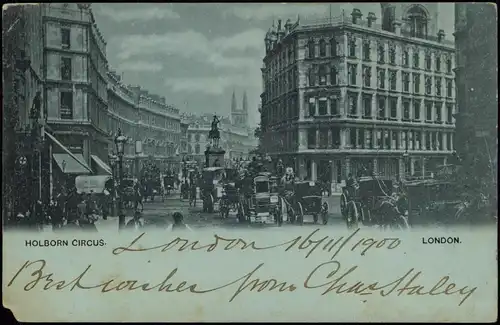 HOLBORN CIRCUS. London 16/11/1900 LONDON.
Best wishes from Chas Haley